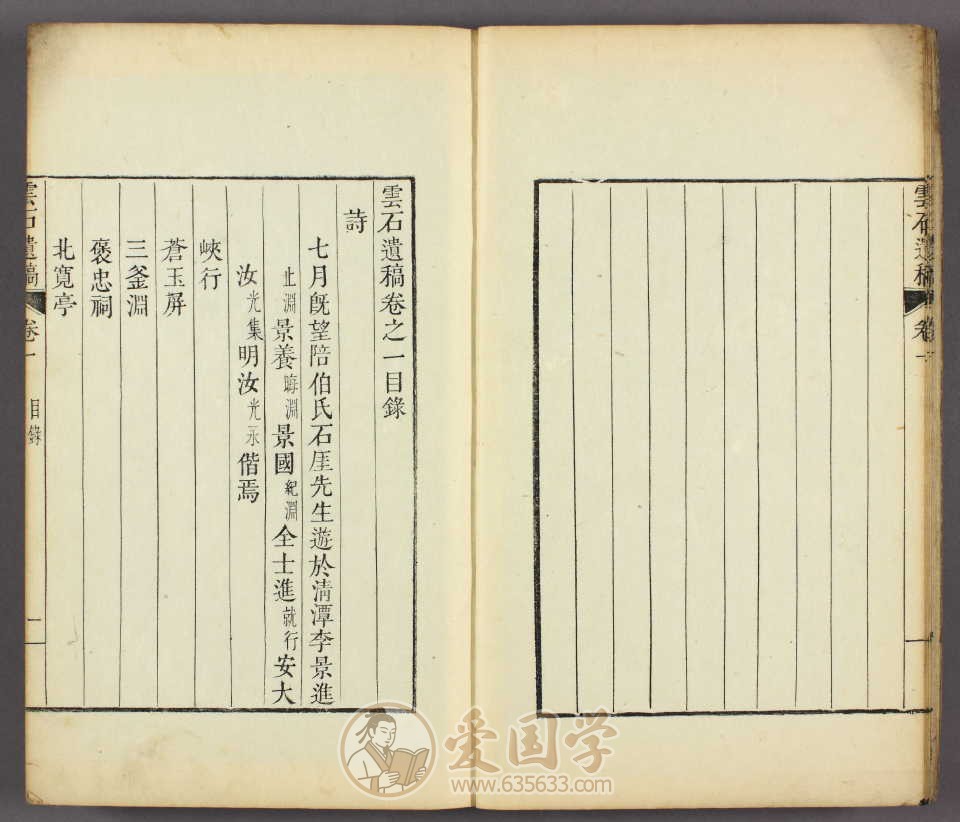 雲石遺稿
卷一
一
雲石遺稿卷之一目錄
詩
七月旣望陪伯氏石厓先生遊於淸潭李景進
止淵景養晦淵景國紀淵全士進就行安大
汝光集明汝光永偕焉
峽行
蒼玉屏
三釜淵
褒忠祠
北寬亭
雲石遺稿
卷一
目錄
一
爱国学
www.635633.com